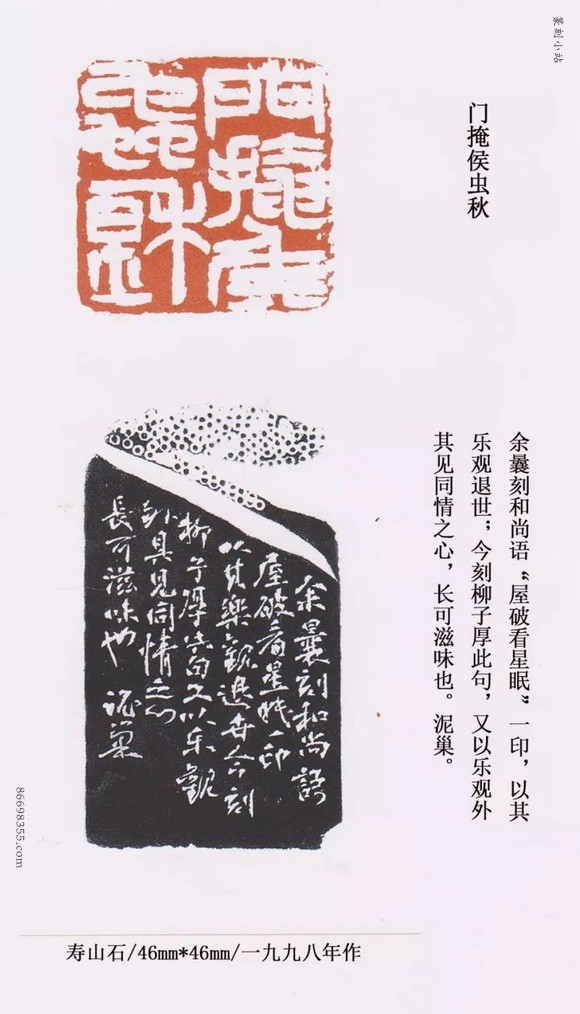 篆刻小站
门掩侯虫秋
門掩矦
蟲秋
余曩刻和尚语“屋破看星眠”一印，以其
乐观退世；今刻柳子厚此句，又以乐观外
其见同情之心，长可滋味也。泥巢。
余曩刻和尚語
屋破看星眠一印
以其樂觀退世今刻
柳子厚此句又以乐觀
外具见同情之心
長可滋味也 泥巢
86698355.com
寿山石/46mm*46mm/一九九八年作